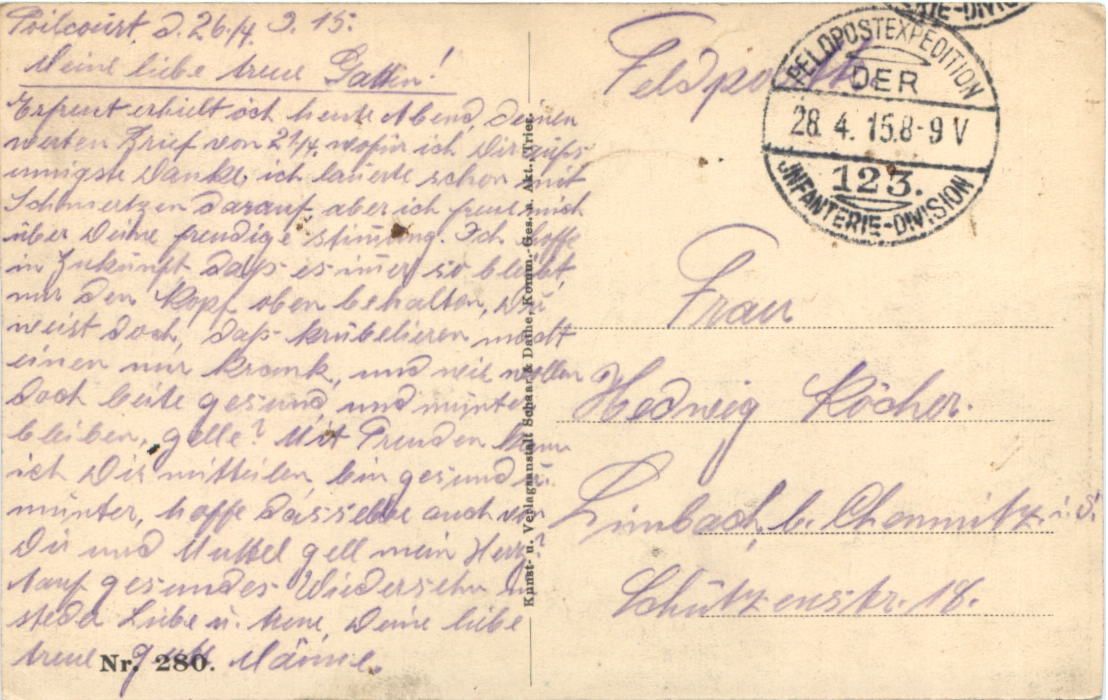 Poilcourt, d. 26/4. 3. 15.
Meine liebe treue Gattin!
Erfreut erhielt ich heute Abend, Deinen
werten Brief von 21/4. wofür ich Dir aufs
innigste Danke, ich lauerte schon mit
Schmertzen darauf, aber ich freue mich
über Deine freudige stimung. Ich hoffe
in Zukunft, daß es imer so bleibt,
nur den Kopf oben behalten, Du
weist doch, daß krübelieren macht
einen nur krank, und wir wollen
doch beite gesund und munter
bleiben, gelle? Mit Freuden kann
ich Dir mitteilen bin gesund u.
munter, hoffe dasselbe auch von
Dir und Muttel gell mein Herz?
Auf gesundes Wiedersehn in
steder Liebe u. treue, Deine liebe
treue Männe.
Nr. 280.
Kunst- u. Verlagsanstalt Schaar & Dathe, Komm.-Ges. a. Akt., Trier.
FELDPOSTEXPEDITION
DER
28. 4. 15. 8-9 V
123.
INFANTERIE-DIVISION
IE-DIVISION
Frau
Hedwig Köcher.
Limbach, b. Chemnitz i. S.
Schützenstr. 18.